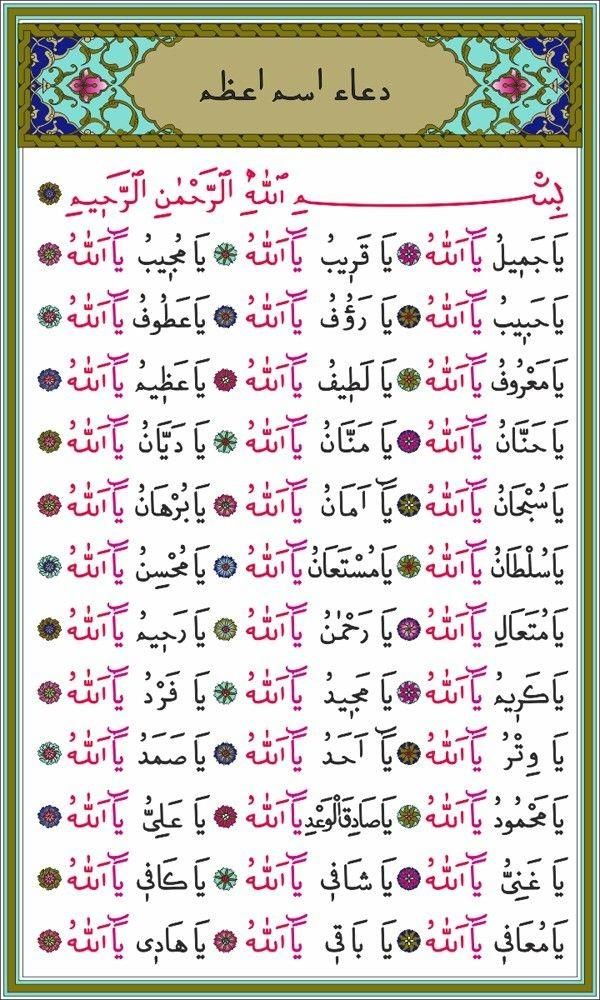 دعاء اسم اعظم
بِسْمِ ٱللّٰهِ ٱلرَّحْمٰنِ ٱلرَّحِيمِ
يَا جَمِيلُ يَا اَللّٰهُ يَا قَرِيبُ يَا اَللّٰهُ يَا مُجِيبُ يَا اَللّٰهُ
يَا حَبِيبُ يَا اَللّٰهُ يَا رَؤُفُ يَا اَللّٰهُ يَا عَطُوفُ يَا اَللّٰهُ
يَا مَعْرُوفُ يَا اَللّٰهُ يَا لَطِيفُ يَا اَللّٰهُ يَا عَظِيمُ يَا اَللّٰهُ
يَا حَنَّانُ يَا اَللّٰهُ يَا مَنَّانُ يَا اَللّٰهُ يَا دَيَّانُ يَا اَللّٰهُ
يَا سُبْحَانُ يَا اَللّٰهُ يَا اَمَانُ يَا اَللّٰهُ يَا بُرْهَانُ يَا اَللّٰهُ
يَا سُلْطَانُ يَا اَللّٰهُ يَا مُسْتَعَانُ يَا اَللّٰهُ يَا مُحْسِنُ يَا اَللّٰهُ
يَا مُتَعَالِ يَا اَللّٰهُ يَا رَحْمٰنُ يَا اَللّٰهُ يَا رَحِيمُ يَا اَللّٰهُ
يَا كَرِيمُ يَا اَللّٰهُ يَا مَجِيدُ يَا اَللّٰهُ يَا فَرْدُ يَا اَللّٰهُ
يَا وِتْرُ يَا اَللّٰهُ يَا اَحَدُ يَا اَللّٰهُ يَا صَمَدُ يَا اَللّٰهُ
يَا مَحْمُودُ يَا اَللّٰهُ يَا صَادِقَ الْوَعْدِ يَا اَللّٰهُ يَا عَلِىُّ يَا اَللّٰهُ
يَا غَنِىُّ يَا اَللّٰهُ يَا شَافِى يَا اَللّٰهُ يَا كَافِى يَا اَللّٰهُ
يَا مُعَافِى يَا اَللّٰهُ يَا بَاقِى يَا اَللّٰهُ يَا هَادِى يَا اَللّٰهُ